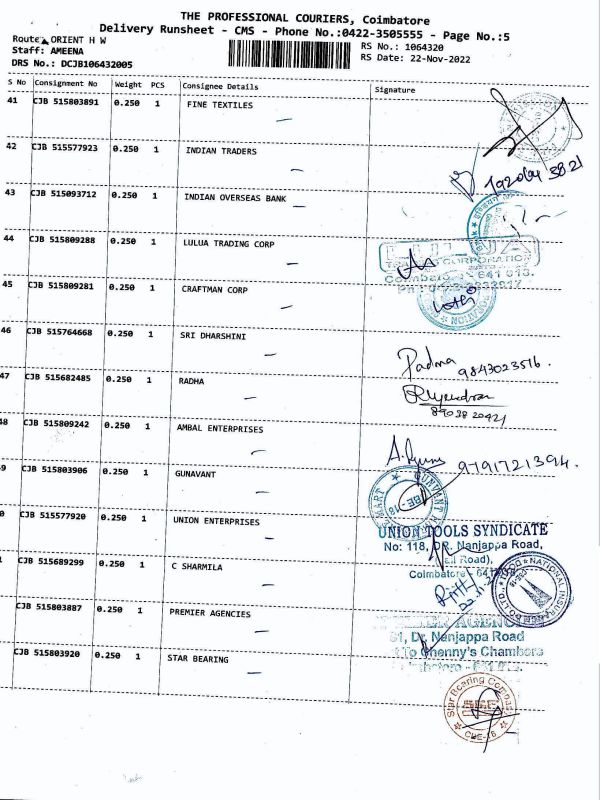 THE PROFESSIONAL COURIERS, Coimbatore
Delivery Runsheet - CMS - Phone No.:0422-3505555 - Page No.:5
Route: ORIENT H W
Staff: AMEENA
DRS No.: DCJB106432005
RS No.: 1064320
RS Date: 22-Nov-2022
S No Consignment No Weight PCS Consignee Details Signature
41 CJB 515803891 0.250 1 FINE TEXTILES
42 CJB 515577923 0.250 1 INDIAN TRADERS
43 CJB 515093712 0.250 1 INDIAN OVERSEAS BANK
44 CJB 515809288 0.250 1 LULUA TRADING CORP
45 CJB 515809281 0.250 1 CRAFTMAN CORP
46 CJB 515764668 0.250 1 SRI DHARSHINI
Padma 9843023516.
47 CJB 515682485 0.250 1 RADHA
48 CJB 515809242 0.250 1 AMBAL ENTERPRISES
9791721394.
9 CJB 515803906 0.250 1 GUNAVANT
0 CJB 515577920 0.250 1 UNION ENTERPRISES
UNION TOOLS SYNDICATE
No: 118, DR. Nanjappa Road,
Road),
Coimbatore - 641
CJB 515689299 0.250 1 C SHARMILA
NATIONAL INSURANCE CO. LTD.
CJB 515803887 0.250 1 PREMIER AGENCIES
61, Dr. Nanjappa Road
To Chenny's Chambers
CJB 515803920 0.250 1 STAR BEARING
Star Bearing Company
CBE-18